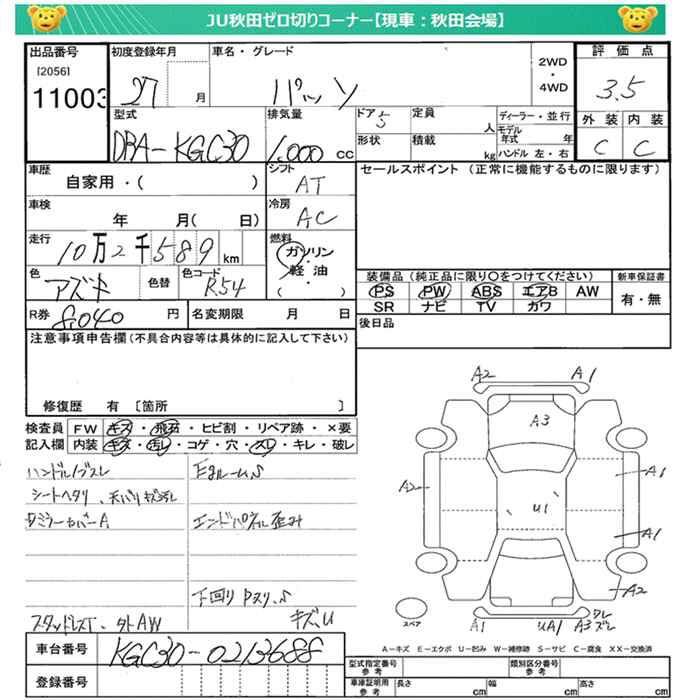 JU秋田ゼロ切りコーナー【現車：秋田会場】
出品番号 初度登録年月 車名・グレード 2WD ・ 4WD 評価点
[2056]
11003 27 月 パッソ 3.5
型式 排気量 ドア 定員 ディーラー・並行 外装 内装
DBA-KGC30 1,000 cc 5 人 モデル年式 年
形状 積載 kg ハンドル 左・右 C C
車歴 シフト セールスポイント（正常に機能するものに限ります）
自家用・（ ） AT
車検 冷房
年 月（ 日） AC
走行 燃料
10万2千589km ガソリン・軽油・（ ）
色 色替 色コード 装備品（純正品に限り〇をつけてください） 新車保証書
アズキ R54 PS PW ABS エアB AW 有・無
SR ナビ TV カワ
R券 8,040 円 名変期限 月 日 後日品
注意事項申告欄（不具合内容等は具体的に記入して下さい）
修復歴 有 〔箇所 〕
検査員記入欄 FW キズ・飛石・ヒビ割・リペア跡・×要
内装 キズ・汚レ・コゲ・穴・スレ・キレ・破レ
ハンドル/ブスレ
シートヘタリ、天バリキズ汚レ
エンドパネル歪み
下回りP
スタッドレスT、夕トAW キズ、U
A2 A1
A3
A2 U1 A1
A1
A2
スペア A1 UA1 A3 ワレ ズレ
A－キズ E－エクボ U－凹み W－補修跡 S－サビ C－腐食 XX－交換済
車台番号 KGC30-0213688 型式指定番号 参考 類別区分番号 参考
登録番号 車庫証明用 参考 長さ cm 幅 cm 高さ cm